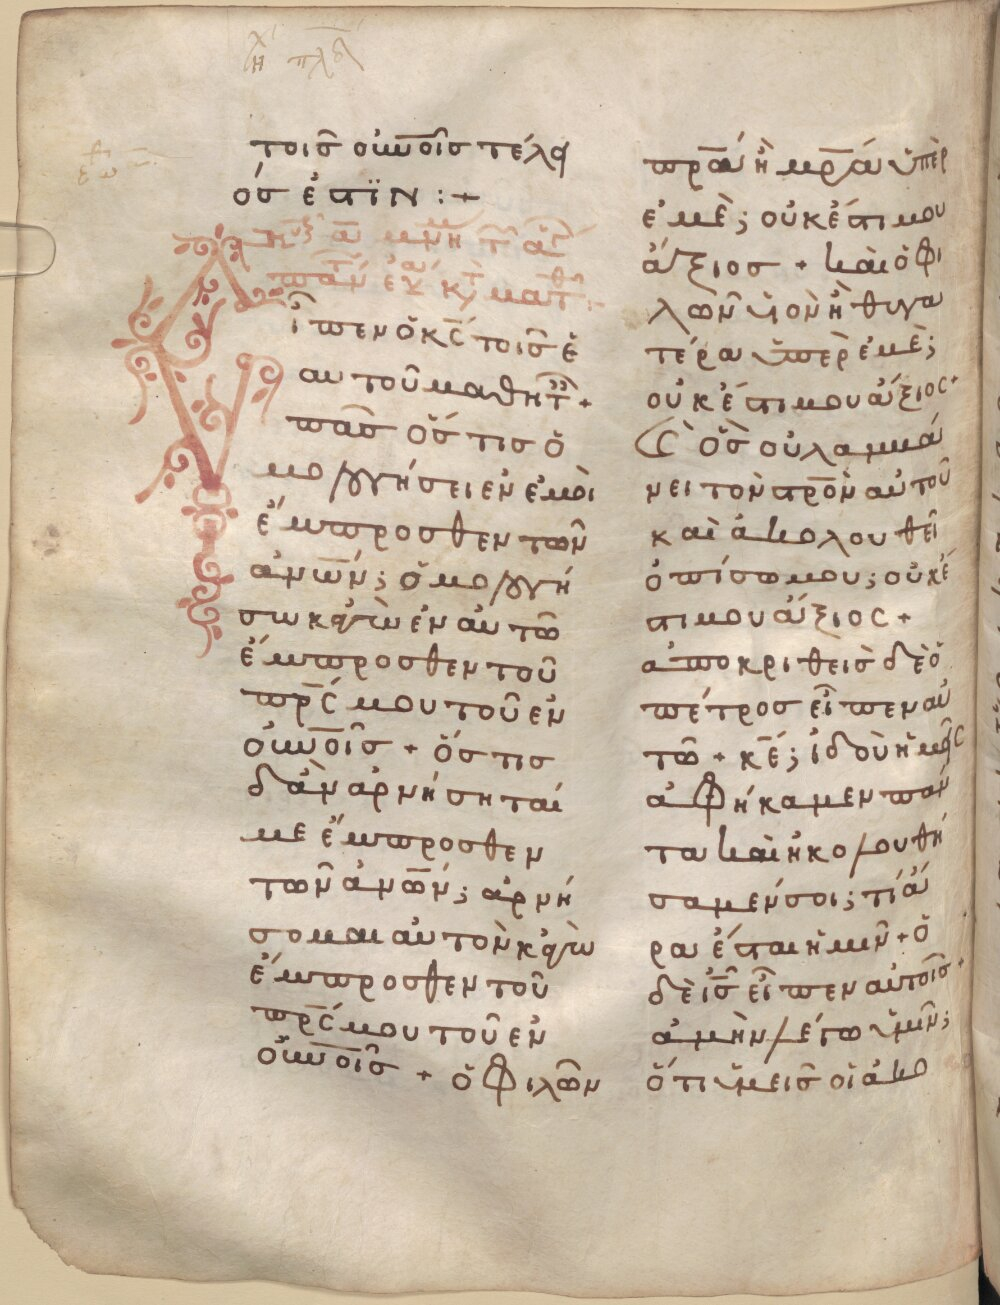 τοῖς οὐνοῖς τέλει
ός ἐστϊν :+
εἶπεν ὁ κς τοῖς ἑ
αυτοῦ μαθητ +
πᾶς ὅστις ὁ
μολογήσει ἐν ἐμοὶ
ἔμπροσθεν τῶν
ἀνων; ὁμολογή
σω κἀγὼ ἐν αὐτῶ
ἔμπροσθεν τοῦ
πρς μου τοῦ ἐν
οὐνοῖς + ὅστις
δἂν ἀρνήσηταί
με ἔμπροσθεν
τῶν ἀνων; ἀρνή
σομαι αὐτὸν κἀγὼ
ἔμπροσθεν τοῦ
πρς μου τοῦ ἐν
οὐνοῖς + ὁ φιλῶν
πρα ἢ μρα ὑπὲρ
ἐμὲ; οὐκ ἔστι μου
ἄξιος + καὶ ὁ φι
λῶν υἱὸν ἢ θυγα
τέρα ὑπὲρ ἐμὲ;
οὐκ ἔστι μου ἄξιος +
ὃς οὐ λαμμβά
νει τὸν στρὸν αὐτοῦ
καὶ ἀκολουθεῖ
ὀπίσω μου; οὐκ ἔ
στι μου ἄξιος +
ἀποκριθεὶς δὲ ὁ
πέτρος εἶπεν αὐ
τῶ + κε; ἰδοὺ ἡμεῖς
ἀφήκαμεν πάν
τα καὶ ἠκολουθή
σαμέν σοι; τί ἄ
ρα ἔσται ἡμῖν + ὁ
δὲ ις εἶπεν αὐτοῖς +
ἀμὴν λέγω ὑμῖν;
ὅτι ὑμεῖς οἱ ἀκο